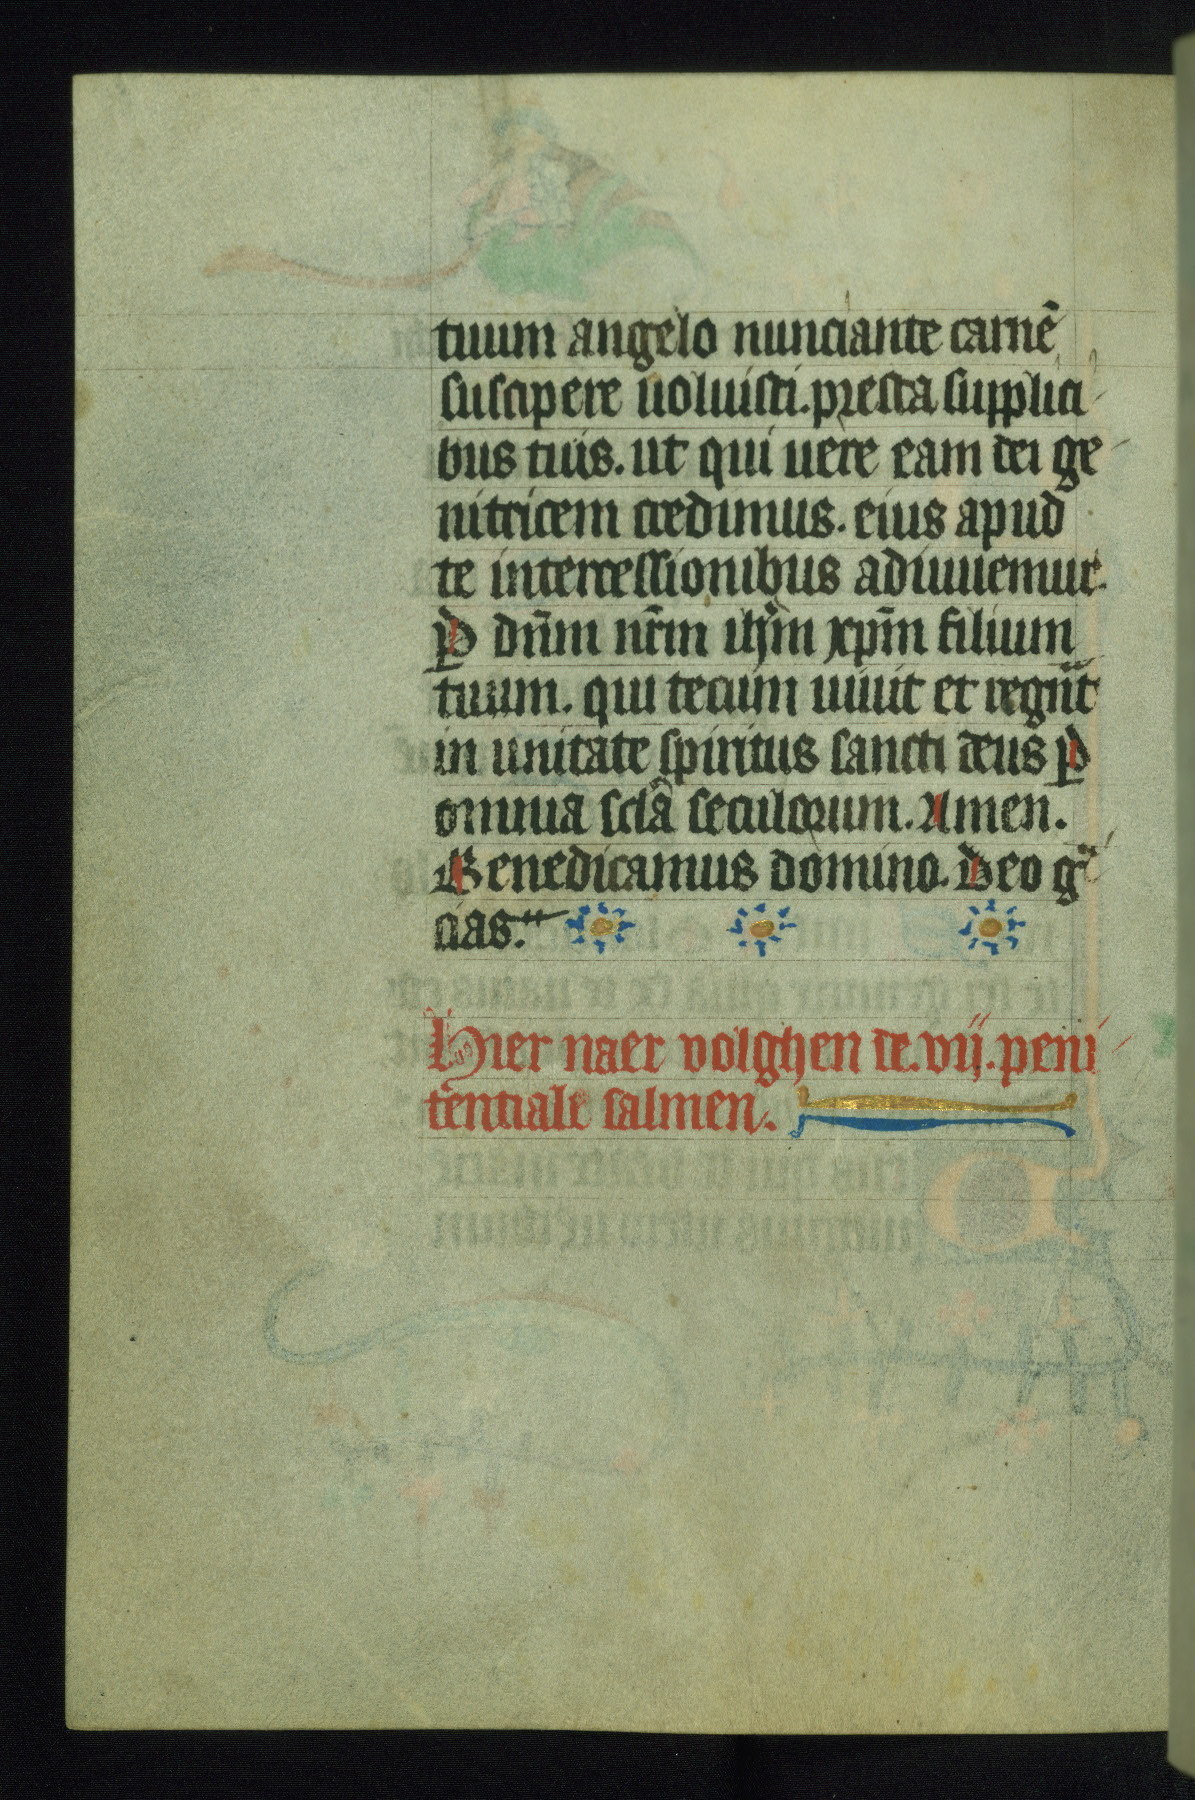 tuum angelo nunciante carnē
suscipere uoluisti. presta supplici
bus tuis. ut qui uere eam dei ge
nitricem credimus. eius apud
te intercessionibus adiuuemur.
P̲ dn̄m nr̄m ihm̄ xp̄m filium
tuum. qui tecum uiuit et regnat
in unitate spiritus sancti deus p̲
omnia sclā seculorum. Amen.
Benedicamus domino. Deo gᵃ
cias.
Hier naer volghen de .vij. peni
tentiale salmen.